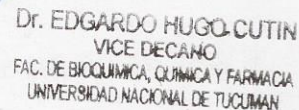 Dr. EDGARDO HUGO CUTIN
VICE DECANO
FAC. DE BIOQUIMICA, QUIMICA Y FARMACIA
UNIVERSIDAD NACIONAL DE TUCUMAN